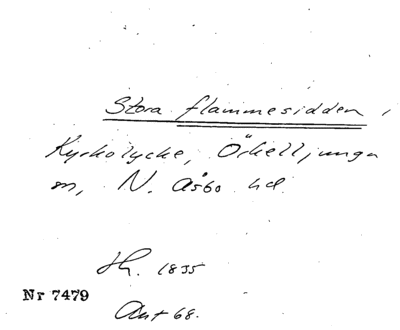 Stora flammesidden,
Kyrkolycke, Örkelljunga
sn, N. Åsbo hd.
Jh. 1835
Nr 7479
Ant 68.